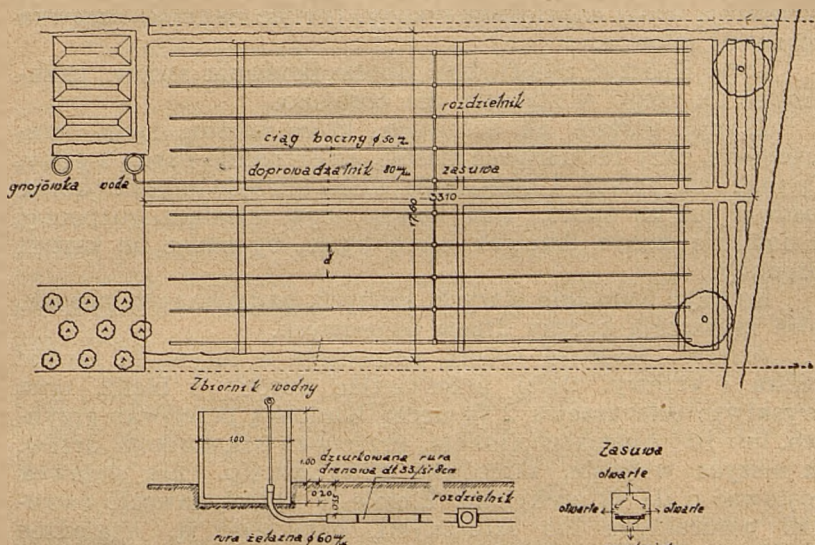 rozdzielnik
ciąg boczny ϕ50 m/m
doprowadzalnik 80 m/m zasuwa
gnojówka woda
3310
1760
d
Zbiornik wodny
1.00
1.00
0.20
0.35
dziurkowana rura
drenowa dł.33/śr 8cm
rozdzielnik
rura żelazna ϕ60 m/m
Zasuwa
otwarte
otwarte otwarte